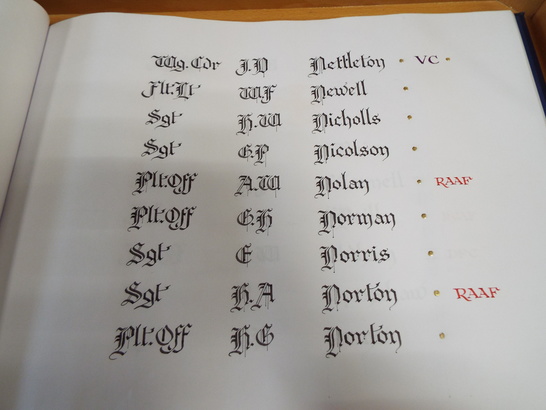 Wg.Cdr J.D Nettleton • VC •
Flt.Lt W.F Newell •
Sgt H.W Nicholls •
Sgt G.P Nicolson •
Plt.Off A.W Nolan • RAAF
Plt.Off G.H Norman •
Sgt E Norris •
Sgt H.A Norton • RAAF
Plt.Off H.G Norton •